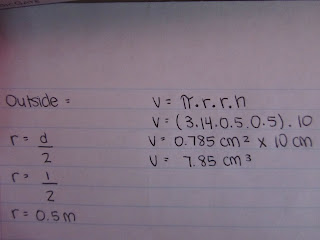 Outside =
r = d/2
r = 1/2
r = 0.5 m
V = π.r.r.h
V = (3.14.0.5.0.5).10
V = 0.785 cm² x 10 cm
V = 7.85 cm³